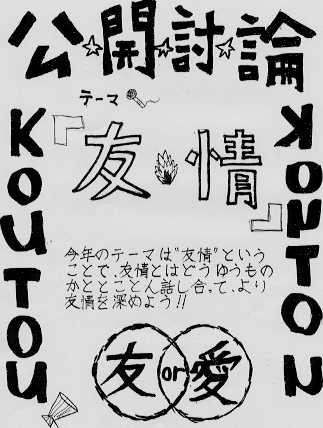 公☆開☆討☆論
テーマ
『友情』
KOUTOU
KOUTON
今年のテーマは"友情"という
ことで、友情とはどうゆうもの
かととことん話し合って、より
友情を深めよう!!
友 or 愛